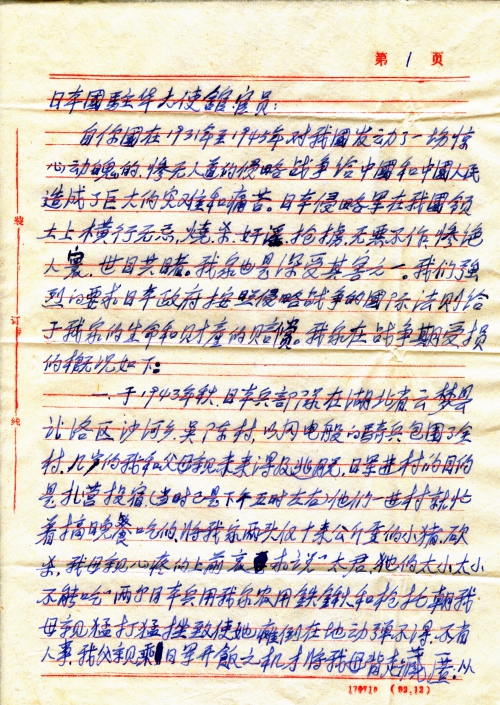 第 1 页
日本國駐华大使舘官员:
自你國在1931年至1945年对我國发动了一场惊
心动魄的,惨无人道的侵略战争给中國和中國人民
造成了巨大的灾难和痛苦。日本侵略军在我國领
土上横行无忌,烧杀,奸淫,抢掳,无恶不作,惨绝
人寰,世目共睹。我家也是深受其害之一。我们强
烈的要求日本政府按照侵略战争的國际法则给
于我家的生命和财產的赔赏。我家在战争期受损
的概况如下:
一.于1943年秋,日本兵部隊在湖北省云梦县
沙河乡,吴陈村,以闪电般的騎兵包围了全
村,九岁的我和父母親未来得及逃脱,日军进村的目的
是扎营投宿(当时已是下午五时左右)他们一进村就忙
着搞晚餐吃的,将我家两头仅十来公斤重的小猪,砍
杀,我母親心疼的上前哀求说"太君,她的太小太小
不能吃"两个日本兵用我家农用鉄鍬和枪托朝我
母親猛打猛挫致使她瘫倒在地动弹不得,不省
人事,我父親乘日军开飯之机才将我母背走藏匿.从
装
订
线
170710 (92.12)